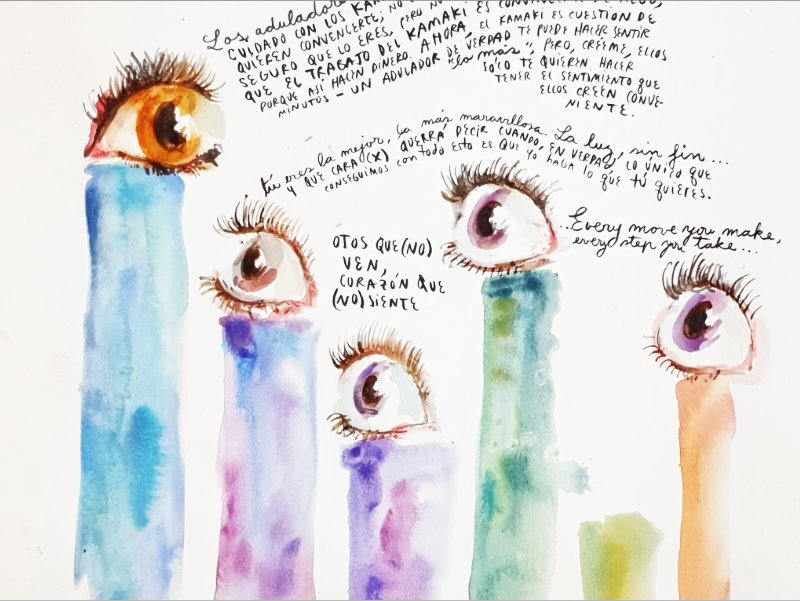 Los aduladore
CUIDADO CON LOS KAM
QUIEREN CONVENCERTE, NO
SEGURO QUE LO ERES, PERO NO
QUE EL TRABAJO DEL KAMAKI ES
PORQUE ASÍ HACEN DINERO. AHORA, EL KAMAKI ES CUESTIÓN DE
MINUTOS – UN ADULADOR DE VERDAD TE PUEDE HACER SENTIR
"la más", PERO, CRÉEME, ELLOS
SÓLO TE QUIEREN HACER
TENER EL SENTIMIENTO QUE
ELLOS CREEN CONVE-
NIENTE.
tú eres la mejor, la más maravillosa. La luz, sin fin...
Y QUE CARA(X) QUERRÁ DECIR CUANDO, EN VERDAD, LO ÚNICO QUE
CONSEGUIMOS con todo esto es QUE YO HAGA LO QUE TÚ QUIERES.
...Every move you make,
every step you take...
OJOS QUE (NO)
VEN,
CORAZÓN QUE
(NO) SIENTE